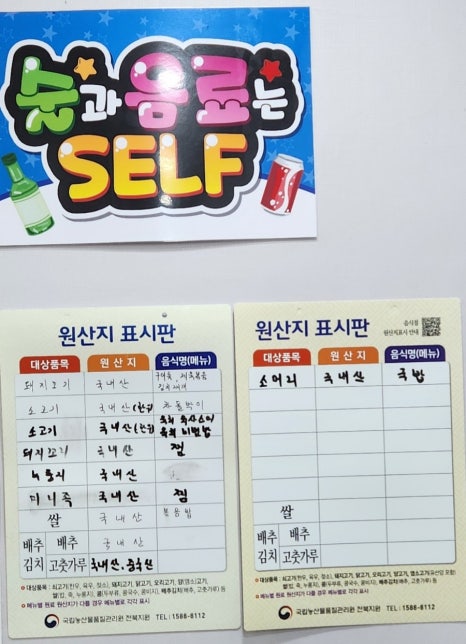 술과음료는
SELF
원산지 표시판
대상품목 원산지 음식명(메뉴)
돼지고기 국내산 제육볶음
소고기 국내산(한우) 차돌박이
소고기 국내산(한우) 육회 비빔밥
돼지꼬리 국내산 찜
누룽지 국내산
미니족 국내산 찜
쌀 국내산 볶음밥
배추김치 배추 국내산
고춧가루 국내산.중국산
• 대상품목 : 쇠고기(한우, 육우, 젖소), 돼지고기, 닭고기, 오리고기, 양(염소)고기,
쌀(밥, 죽, 누룽지), 콩(두부류, 콩국수, 콩비지), 배추김치(배추, 고춧가루) 등
• 메뉴별 원료 원산지가 다를 경우 메뉴별로 각각 표시
국립농산물품질관리원 전북지원 TEL : 1588-8112
원산지 표시판
음식점
원산지표시 안내
대상품목 원산지 음식명(메뉴)
소머리 국내산 국밥
쌀
배추김치 배추
고춧가루
• 대상품목 : 쇠고기(한우, 육우, 젖소), 돼지고기, 닭고기, 오리고기, 양고기, 염소고기(유산양 포함)
쌀(밥, 죽, 누룽지), 콩(두부류, 콩국수, 콩비지), 배추김치(배추, 고춧가루) 등
• 메뉴별 원료 원산지가 다를 경우 메뉴별로 각각 표시
국립농산물품질관리원 전북지원 TEL : 1588-8112